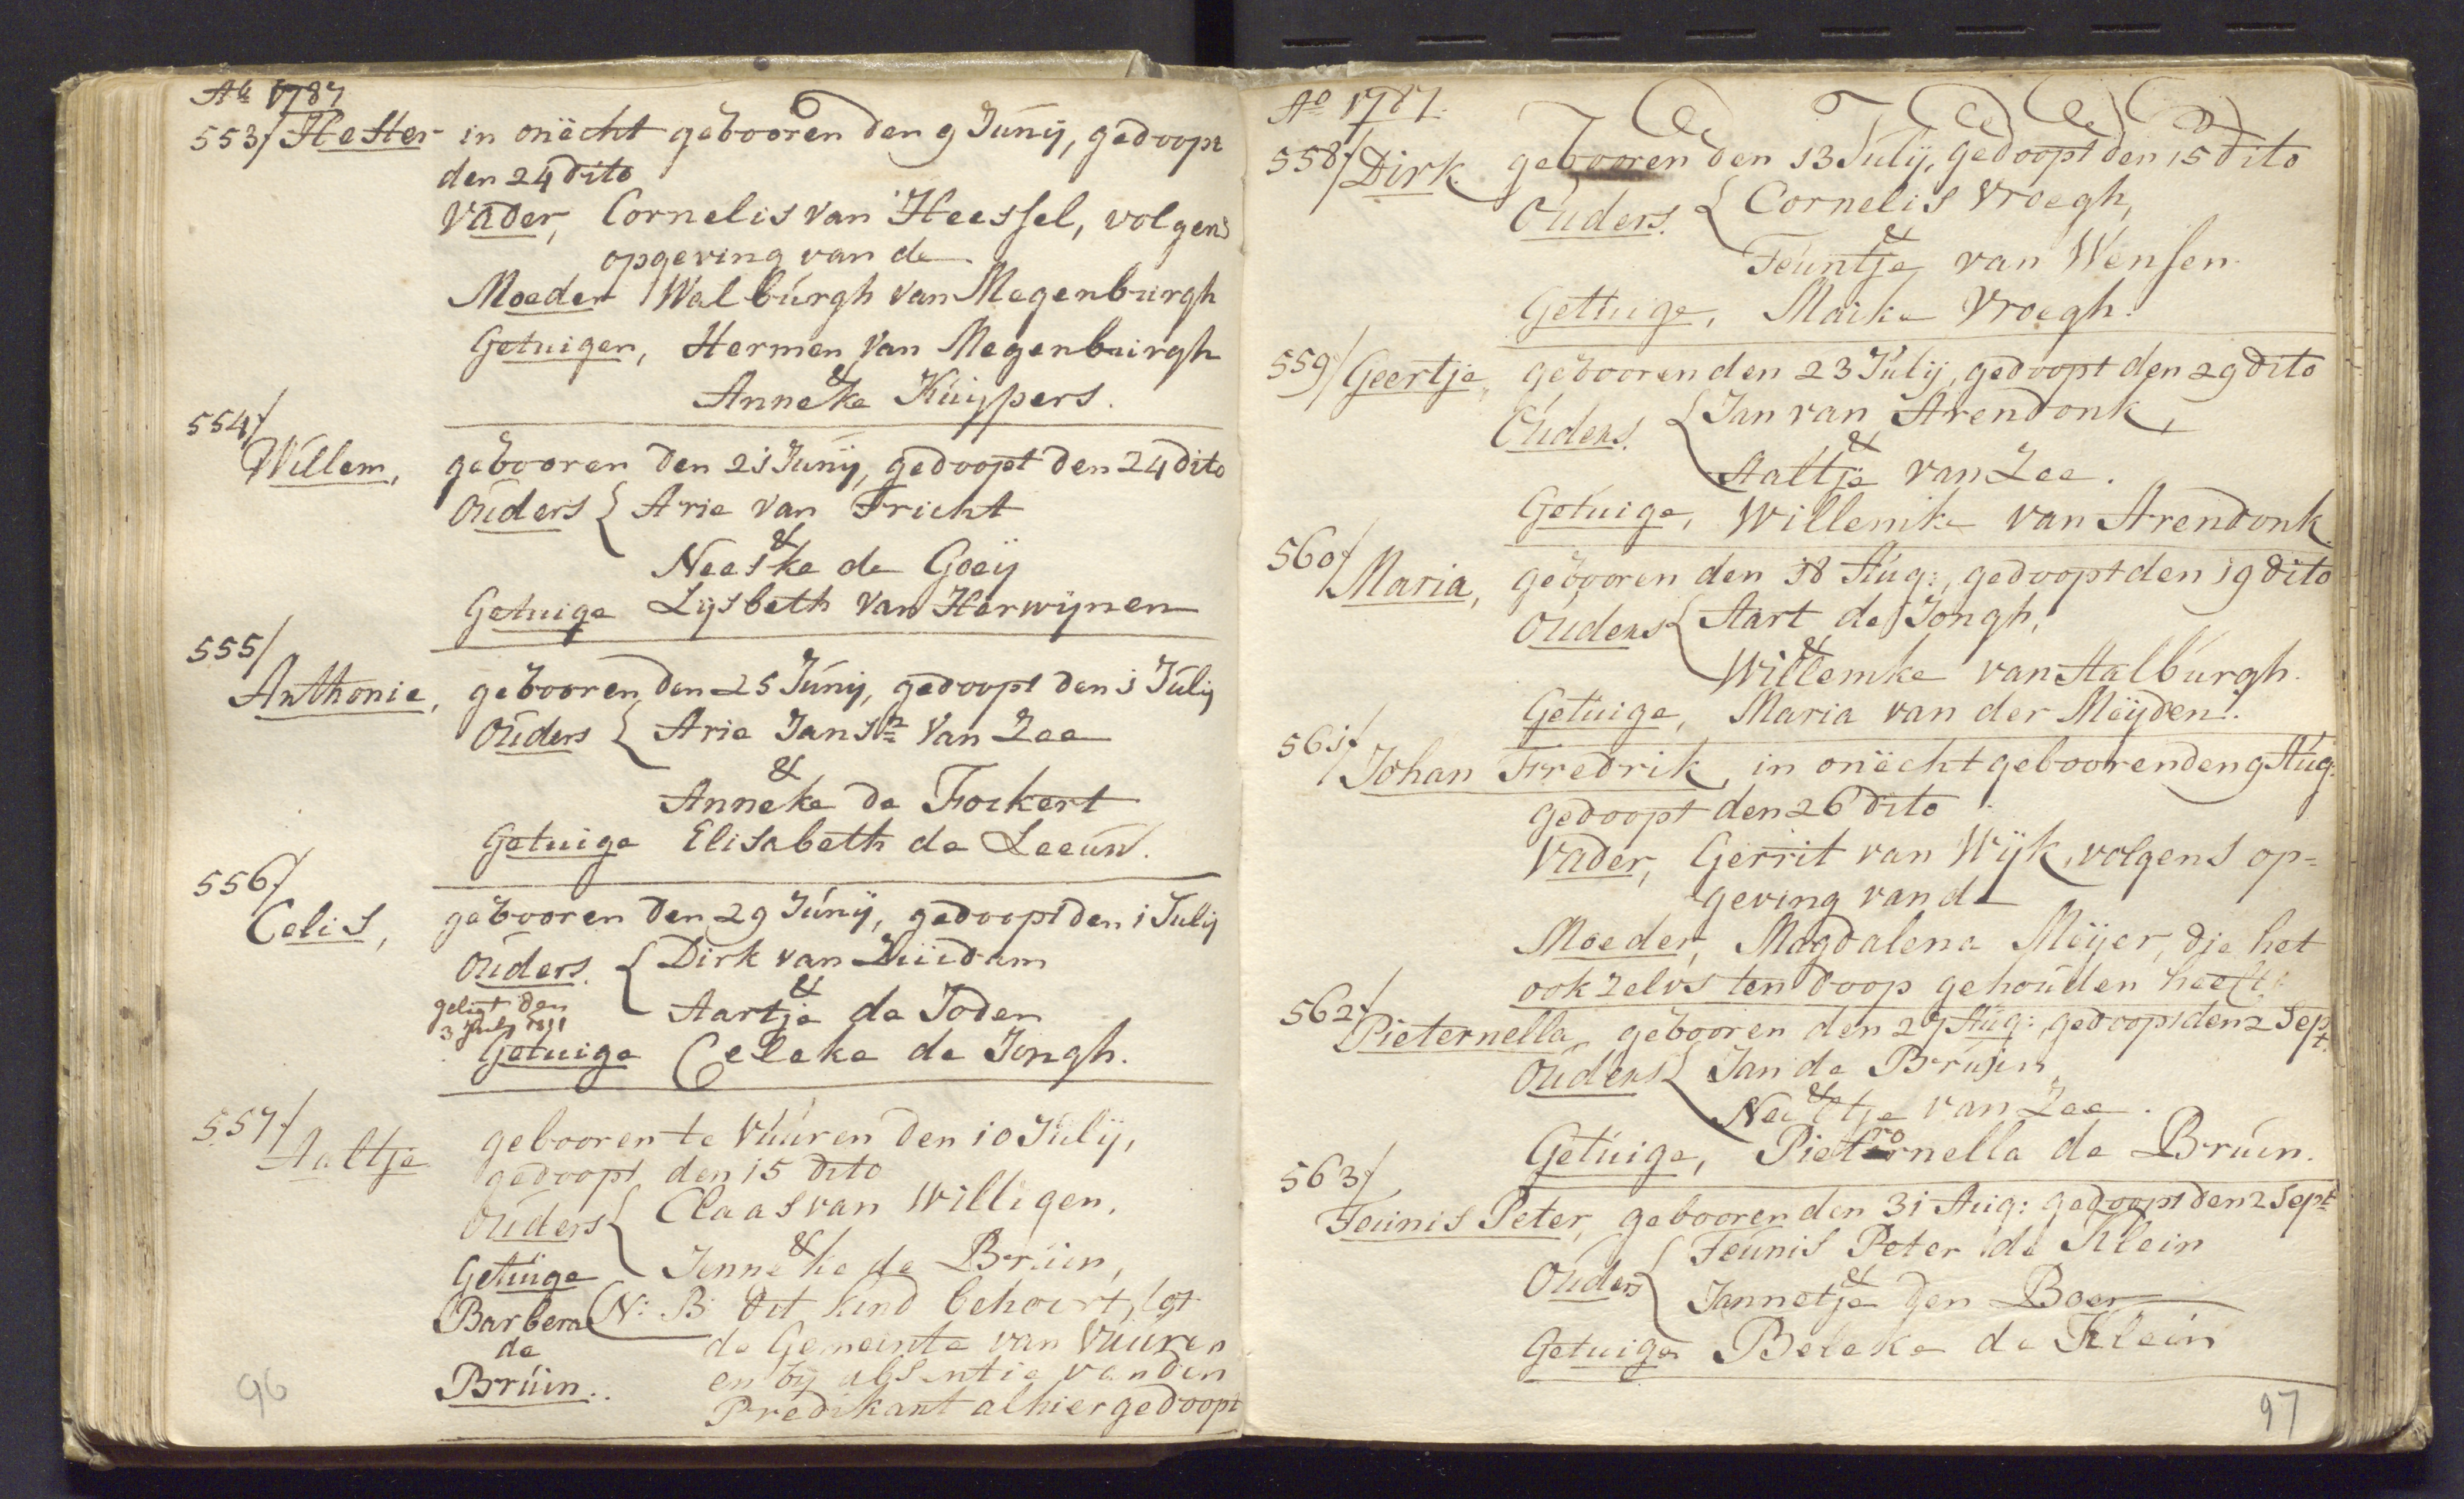 Ao 1787
553/ Hester in onëcht gebooren den 9 Junij, gedoopt
den 24 dito
Vader, Cornelis van Heessel, volgens
opgeving van de
Moeder Walburgh van Megenburgh
Getuigen, Hermen van Megenburgh
&
Anneke Kuijpers.
554/
Willem, gebooren den 21 Junij, gedoopt den 24 dito
Ouders { Arie van Tricht
&
Neeske de Goeij
Getuige Lijsbeth van Herwijnen
555/
Anthonie, gebooren den 25 Junij, gedoopt den 1 Julij
Ouders { Arie Jansn van Zee
&
Anneke de Fockert
Getuige Elisabeth de Leeuw.
556/
Celis, gebooren den 29 Junij, gedoopt den 1 Julij
Ouders. { Dirk van Zuidam
&
Aartje de Joden
geligt den
3 July 1811
Getuige Celeke de Jongh.
557/
Aaltje gebooren te Vuuren den 10 Julij,
gedoopt den 15 dito
Ouders { Claas van Willigen,
&
Jenneke de Bruin,
Getuige
Barbera
de
Bruin..
N: B: dit kind behoort tot
de Gemeinte van Vuuren
en bij absentie van den
Predikant alhier gedoopt
96
Ao 1787.
558/ Dirk gebooren den 13 Julij, gedoopt den 15 dito
Ouders. { Cornelis Vroegh,
&
Teuntje van Wensen
Getuige, Maike Vroegh.
559/ Geertje, gebooren den 23 Julij, gedoopt den 29 dito
Ouders. { Jan van Arendonk,
&
Aaltje van Zee.
Getuige, Willemke van Arendonk
560/
Maria, gebooren den 18 Aug:, gedoopt den 19 dito
Ouders { Aart de Jongh,
&
Willemke van Aalburgh.
Getuige, Maria van der Meijden.
561/
Johan Fredrik, in onëcht gebooren den 9 Aug:
gedoopt den 26 dito
Vader, Gerrit van Wijk, volgens op=
geving van de
Moeder, Magdalena Meijer, die het
ook zelvs ten doop gehouden heeft
562/
Pieternella gebooren den 27 Aug: gedoopt den 2 Sept.
Ouders { Jan de Bruijn,
&
Neeltje van Zee.
Getuige, Pieternella de Bruin.
563/
Teunis Peter, gebooren den 31 Aug: gedoopt den 2 Sept
Ouders { Teunis Peter de Klein
&
Jannetje den Boer
Getuige Beleke de Klein
97